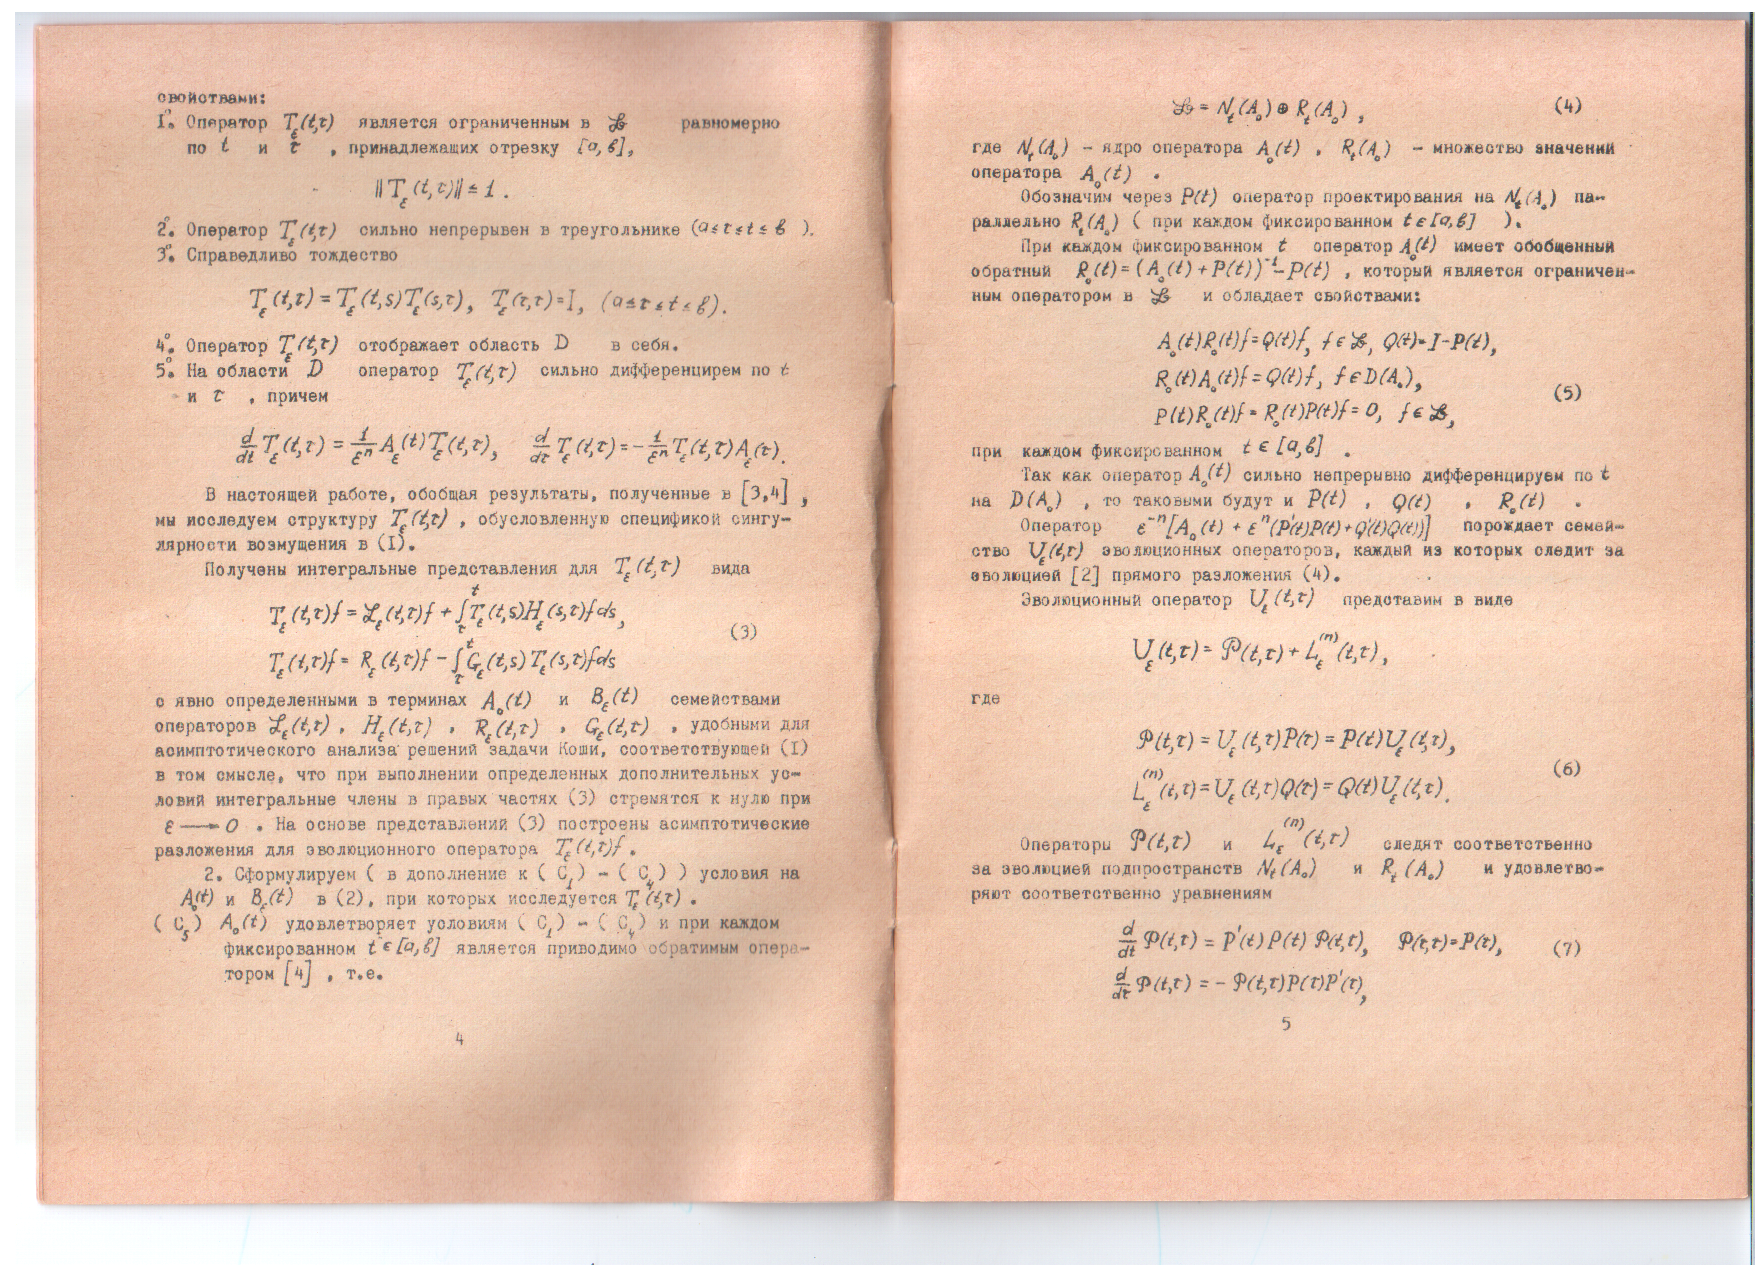 свойствами:
1°. Оператор T_ε(t,τ) является ограниченным в ℬ равномерно
по t и τ , принадлежащих отрезку [a,b],
‖T_ε(t,τ)‖ ≤ 1 .
2°. Оператор T_ε(t,τ) сильно непрерывен в треугольнике (a≤τ≤t≤b ).
3°. Справедливо тождество
T_ε(t,τ) = T_ε(t,s)T_ε(s,τ), T_ε(τ,τ)=I, (a≤τ≤t≤b).
4°. Оператор T_ε(t,τ) отображает область D в себя.
5°. На области D оператор T_ε(t,τ) сильно дифференцирем по t
и τ , причем
d/dt T_ε(t,τ) = 1/ε^n A_ε(t)T_ε(t,τ), d/dτ T_ε(t,τ) = - 1/ε^n T_ε(t,τ)A_ε(τ).
В настоящей работе, обобщая результаты, полученные в [3,4] ,
мы исследуем структуру T_ε(t,τ) , обусловленную спецификой сингу-
лярности возмущения в (I).
Получены интегральные представления для T_ε(t,τ) вида
T_ε(t,τ)f = ℒ_ε(t,τ)f + ∫_τ^t T_ε(t,s)H_ε(s,τ)fds,
(3)
T_ε(t,τ)f = R_ε(t,τ)f - ∫_τ^t G_ε(t,s)T_ε(s,τ)fds
с явно определенными в терминах A_0(t) и B_ε(t) семействами
операторов ℒ_ε(t,τ) , H_ε(t,τ) , R_ε(t,τ) , G_ε(t,τ) , удобными для
асимптотического анализа решений задачи Коши, соответствующей (I)
в том смысле, что при выполнении определенных дополнительных ус-
ловий интегральные члены в правых частях (3) стремятся к нулю при
ε → 0 . На основе представлений (3) построены асимптотические
разложения для эволюционного оператора T_ε(t,τ)f .
2. Сформулируем ( в дополнение к ( C_1) - ( C_4) ) условия на
A_0(t) и B_ε(t) в (2), при которых исследуется T_ε(t,τ) .
( C_5) A_0(t) удовлетворяет условиям ( C_1) - ( C_4) и при каждом
фиксированном t ∈ [a,b] является приводимо обратимым опера-
тором [4] , т.е.
4
ℬ = N_t(A_0) ⊕ R_t(A_0) , (4)
где N_t(A_0) - ядро оператора A_0(t) , R_t(A_0) - множество значений
оператора A_0(t) .
Обозначим через P(t) оператор проектирования на N_t(A_0) па-
раллельно R_t(A_0) ( при каждом фиксированном t∈[a,b] ).
При каждом фиксированном t оператор A_0(t) имеет обобщенный
обратный R_0(t) = (A_0(t)+P(t))^{-1} - P(t) , который является ограничен-
ным оператором в ℬ и обладает свойствами:
A_0(t)R_0(t)f = Q(t)f, f∈ℬ, Q(t)=I-P(t),
R_0(t)A_0(t)f = Q(t)f, f∈D(A_0), (5)
P(t)R_0(t)f = R_0(t)P(t)f = 0, f∈ℬ,
при каждом фиксированном t ∈ [a,b] .
Так как оператор A_0(t) сильно непрерывно дифференцируем по t
на D(A_0) , то таковыми будут и P(t) , Q(t) , R_0(t) .
Оператор ε^{-n}[A_0(t) + ε^n(P'(t)P(t)+Q'(t)Q(t))] порождает семей-
ство U_ε(t,τ) эволюционных операторов, каждый из которых следит за
эволюцией [2] прямого разложения (4).
Эволюционный оператор U_ε(t,τ) представим в виде
U_ε(t,τ) = 𝒫(t,τ) + L_ε^{(n)}(t,τ),
где
𝒫(t,τ) = U_ε(t,τ)P(τ) = P(t)U_ε(t,τ),
(6)
L_ε^{(n)}(t,τ) = U_ε(t,τ)Q(τ) = Q(t)U_ε(t,τ).
Операторы 𝒫(t,τ) и L_ε^{(n)}(t,τ) следят соответственно
за эволюцией подпространств N_t(A_0) и R_t(A_0) и удовлетво-
ряют соответственно уравнениям
d/dt 𝒫(t,τ) = P'(t)P(t) 𝒫(t,τ), 𝒫(τ,τ)=P(τ), (7)
d/dτ 𝒫(t,τ) = - 𝒫(t,τ)P(τ)P'(τ),
5